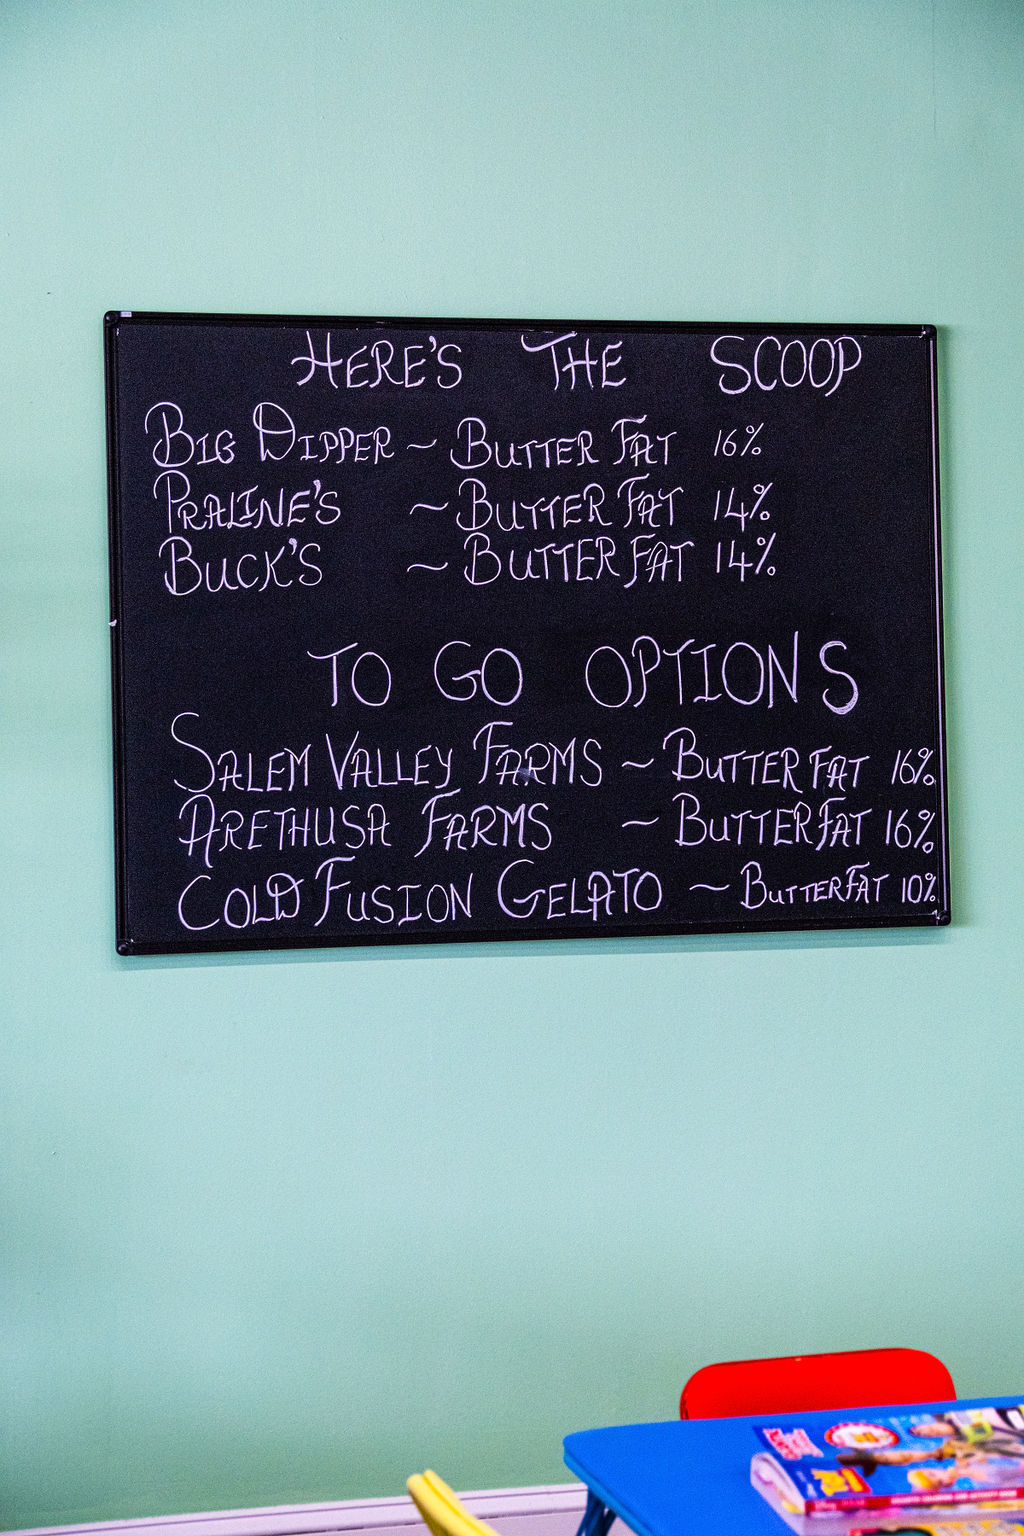 HERE'S THE SCOOP
BIG DIPPER ~ BUTTER FAT 16%
PRALINE'S ~ BUTTER FAT 14%
BUCK'S ~ BUTTER FAT 14%
TO GO OPTIONS
SALEM VALLEY FARMS ~ BUTTER FAT 16%
ARETHUSA FARMS ~ BUTTER FAT 16%
COLD FUSION GELATO ~ BUTTER FAT 10%